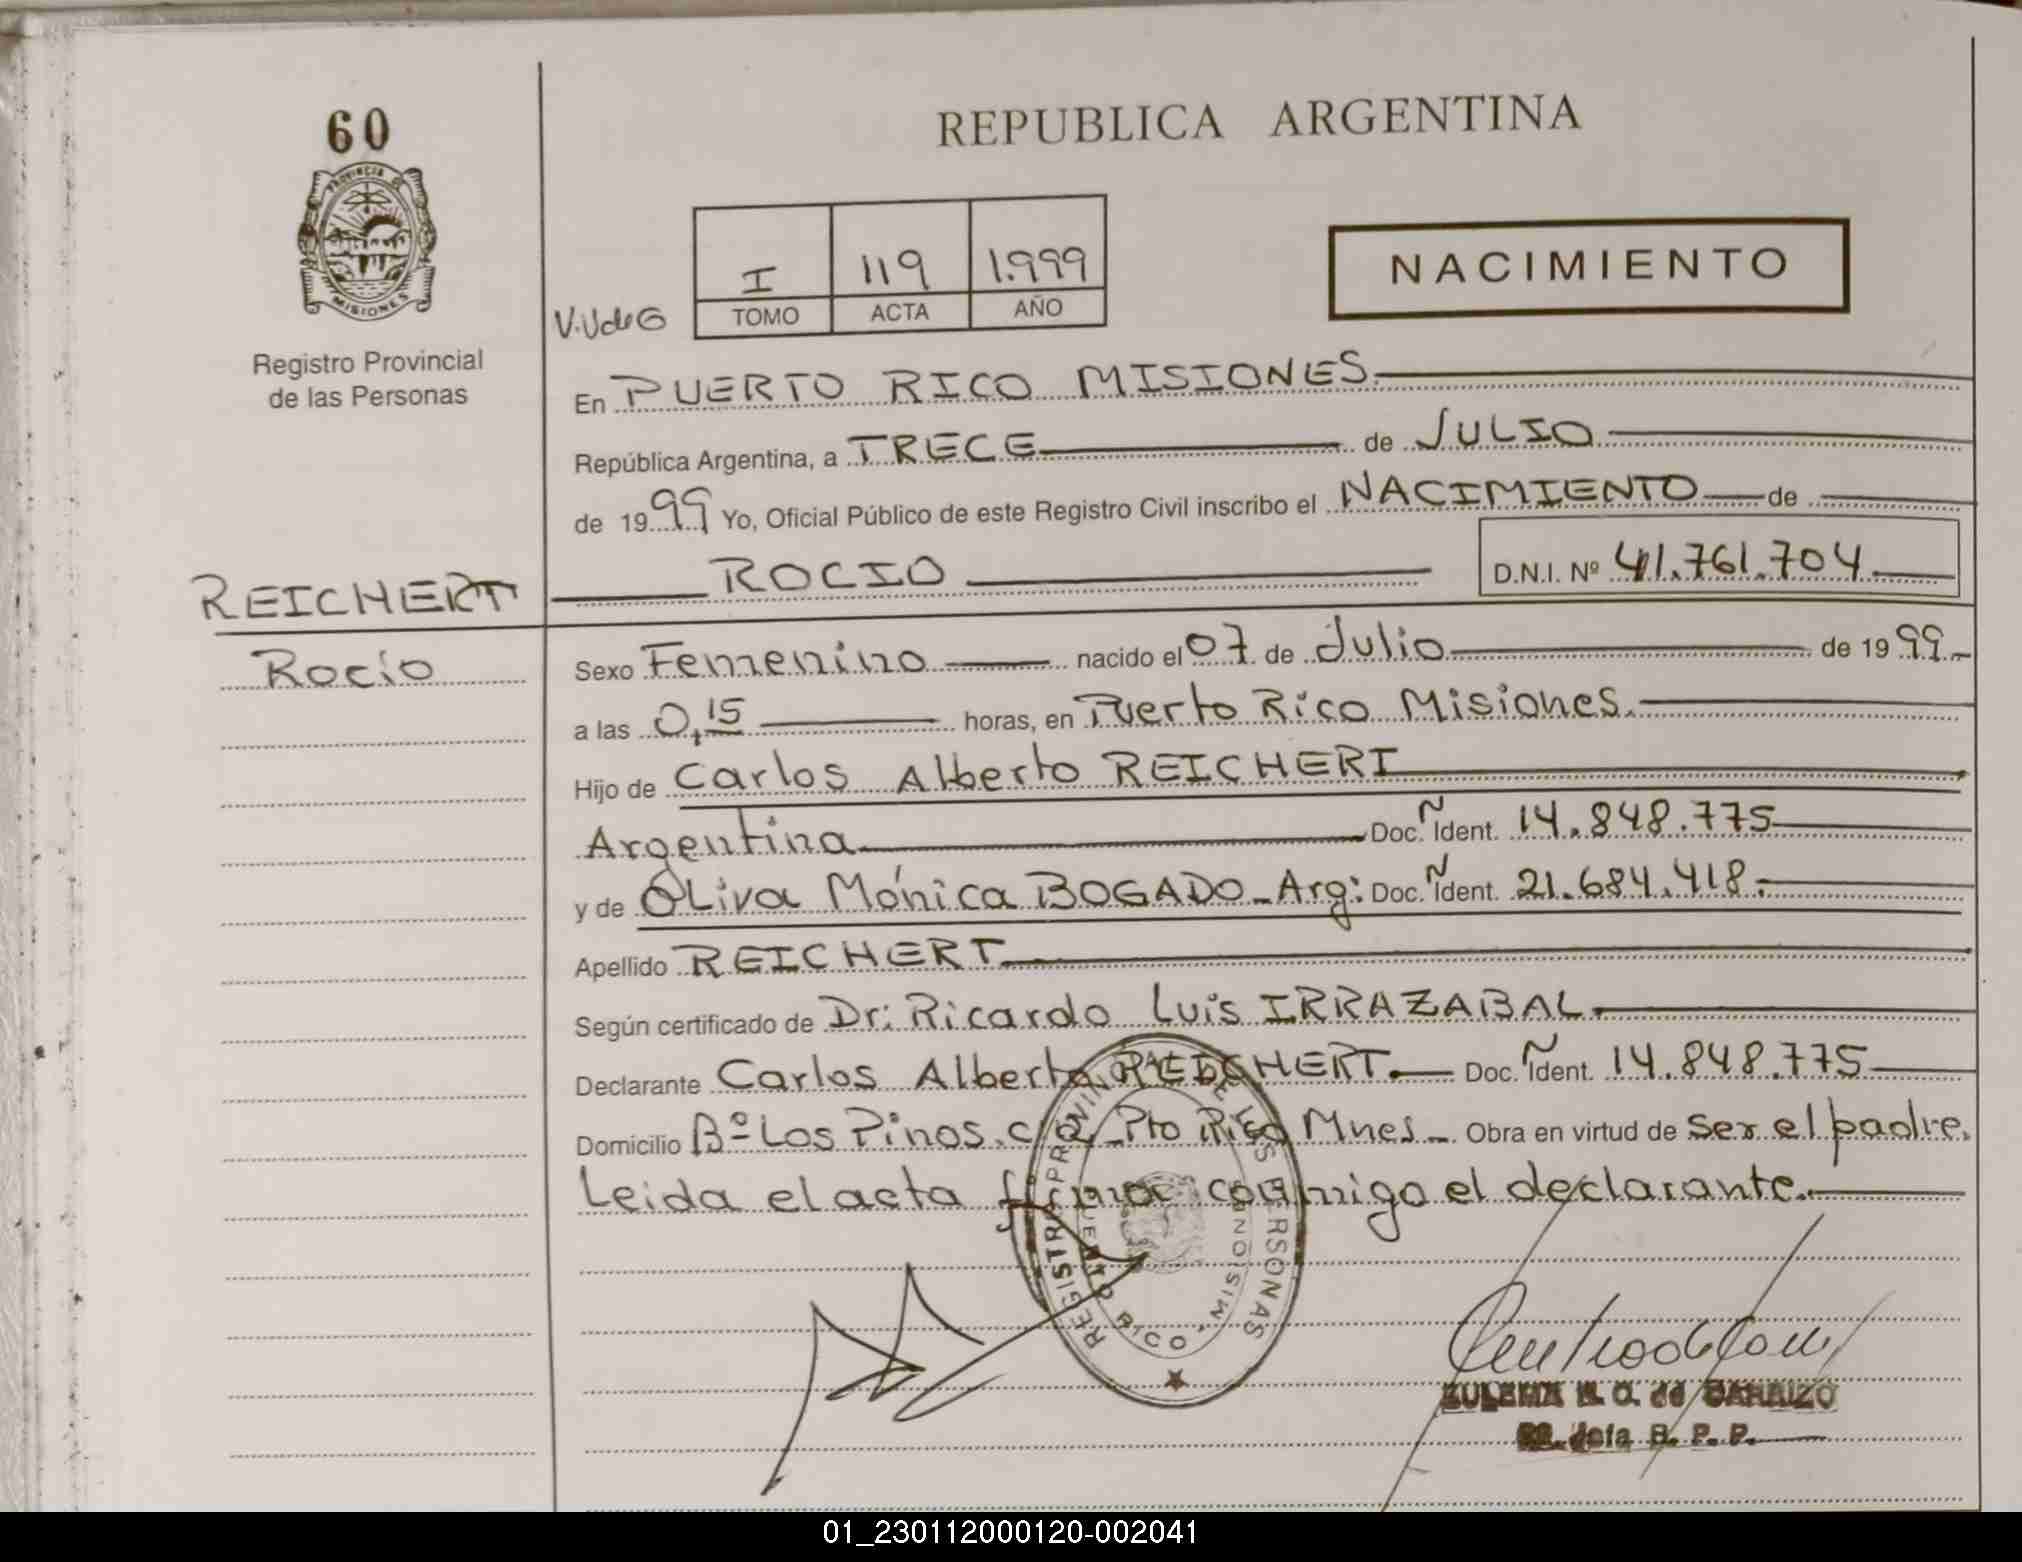 60
PROVINCIA DE
MISIONES
Registro Provincial
de las Personas
REPUBLICA ARGENTINA
I 119 1.999
TOMO ACTA AÑO
NACIMIENTO
En PUERTO RICO MISIONES.
República Argentina, a TRECE de JULIO
de 1999 Yo, Oficial Público de este Registro Civil inscribo el NACIMIENTO de
REICHERT ROCIO D.N.I. Nº 41.761.704
Rocío Sexo Femenino nacido el 07 de Julio de 1999.
a las 0,15 horas, en Puerto Rico Misiones.
Hijo de Carlos Alberto REICHERT
Argentina Doc. Ident. 14.848.775
y de OLiva Mónica BOGADO - Arg: Doc. Ident. 21.684.418.
Apellido REICHERT
Según certificado de Dr: Ricardo Luis IRRAZABAL.
Declarante Carlos Alberto REICHERT. Doc. Ident. 14.848.775
Domicilio Bº Los Pinos. Pto Rico Mnes - Obra en virtud de ser el padre.
Leida el acta firma conmigo el declarante.
REGISTRO PROVINCIAL DE LAS PERSONAS
PUERTO RICO - MISIONES
R. P. P.
01_230112000120-002041